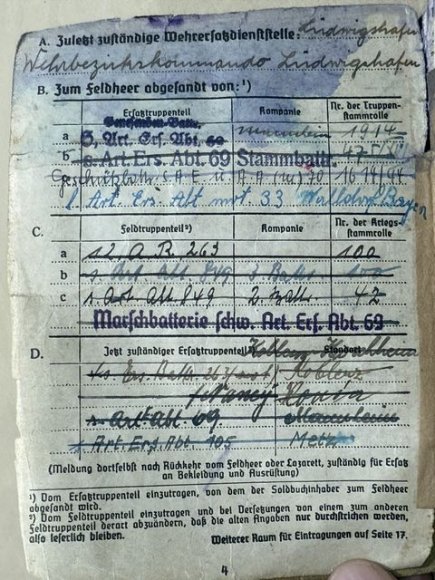 A. Zuletzt zuständige Wehrersatzdienststelle: Ludwigshafen
Wehrbezirkskommando Ludwigshafen
B. Zum Feldheer abgesandt von:¹)
Ersatztruppenteil Kompanie Nr. der Truppenstammrolle
a S. Art. Ers. Abt. 69 Mannheim 1914
b s. Art. Ers. Abt. 69 Stammbattr.
c
s. Art. Ers. Abt mot. 33
C. Feldtruppenteil²) Kompanie Nr. der Kriegsstammrolle
a 12. A.R. 263 100
b s. Art. Abt. 849 3. Battr. 100
c s. Art. Abt 849 2. Battr. 42
Marschbatterie schw. Art. Ers. Abt. 69
D. Jetzt zuständiger Ersatztruppenteil Standort
Koblenz
s. Art. Abt. 69 Mannheim
s. Art. Ers. Abt. 105 Metz
(Meldung dortselbst nach Rückkehr vom Feldheer oder Lazarett, zuständig für Ersatz
an Bekleidung und Ausrüstung)
¹) Vom Ersatztruppenteil einzutragen, von dem der Soldbuchinhaber zum Feldheer
abgesandt wird.
²) Vom Feldtruppenteil einzutragen und bei Versetzungen von einem zum anderen
Feldtruppenteil derart abzuändern, daß die alten Angaben nur durchstrichen werden,
also leserlich bleiben.
Weiterer Raum für Eintragungen auf Seite 17.
4